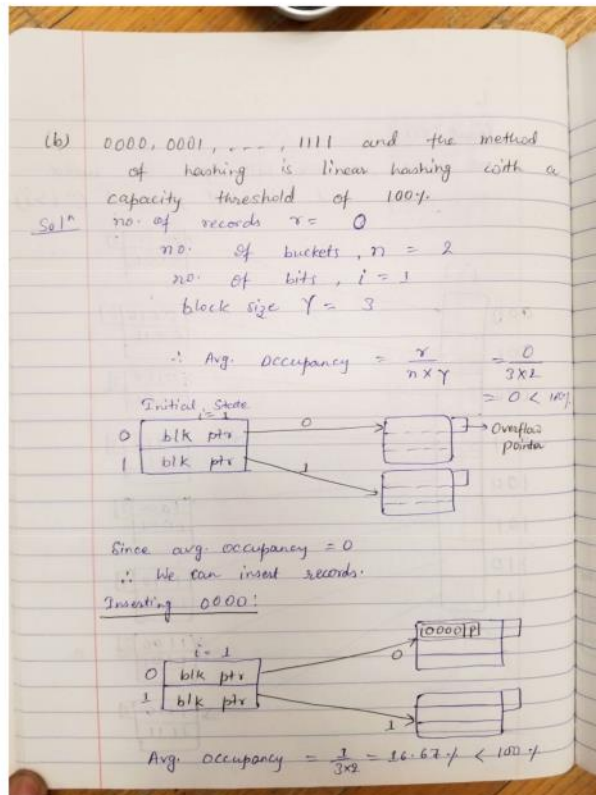 (b) 0000, 0001, ----, 1111 and the method
of hashing is linear hashing with a
capacity threshold of 100%.
Solⁿ no. of records r = 0
no. of buckets, n = 2
no. of bits, i = 1
block size Y = 3
∴ Avg. Occupancy = r / n × Y = 0 / 3×2
= 0 < 100%
Initial State
i = 1
0 blk ptr 0 → Overflow pointer
1 blk ptr 1
Since avg. occupancy = 0
∴ We can insert records.
Inserting 0000:
i = 1
0 blk ptr 0 0000 P
1 blk ptr 1
Avg. occupancy = 1 / 3×2 = 16.67% < 100%